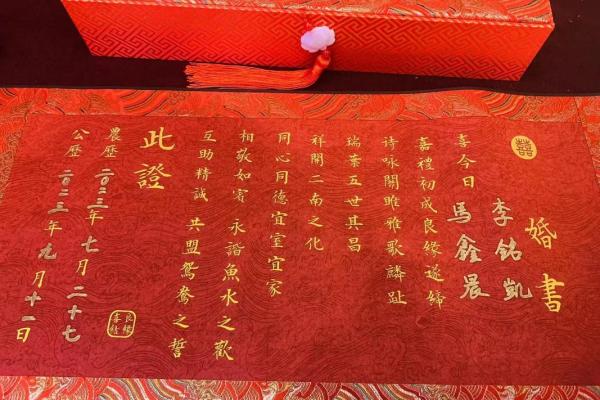 囍
婚書
李銘凱
喜今日 馬鑫晨
嘉禮初成良緣遂締
诗咏關雎雅歌麟趾
瑞葉五世其昌
祥開二南之化
同心同德宜室宜家
相敬如賓 永諧魚水之歡
互助精誠 共盟鴛鴦之誓
此證
農歷 二〇二三年七月二十七
公歷 二〇二三年九月十一日